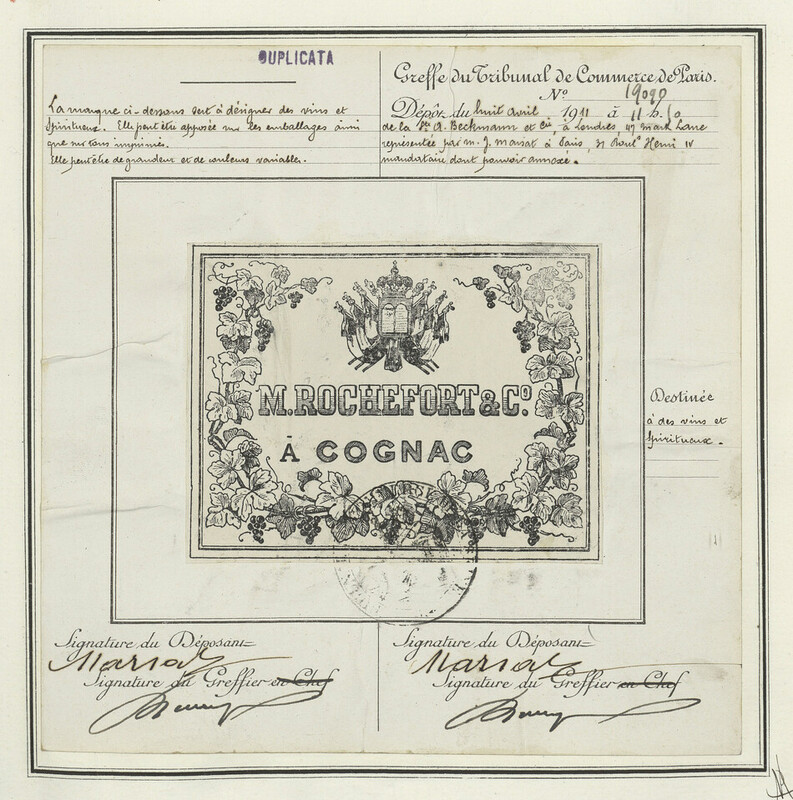 DUPLICATA
La marque ci-dessous sert à désigner des vins et
spiritueux. Elle peut être apposée sur les emballages ainsi
que sur tous imprimés.
Elle peut être de grandeur et de couleurs variables.
Greffe du Tribunal de Commerce de Paris.
No 19090
Dépôt du huit avril 1911 à 11 h. 50
de la Sté A. Beckmann et Cie, à Londres, 47 Mark Lane
représentée par M. J. Marsat à Paris, 31 Boulᵈ Henri IV
mandataire dont pouvoir annexé.
M. ROCHEFORT & Cº.
À COGNAC
Destinée
à des vins et
spiritueux.
Signature du Déposant
Signature du Déposant
Marsat
Marsat
Signature du Greffier en Chef
Signature du Greffier en Chef